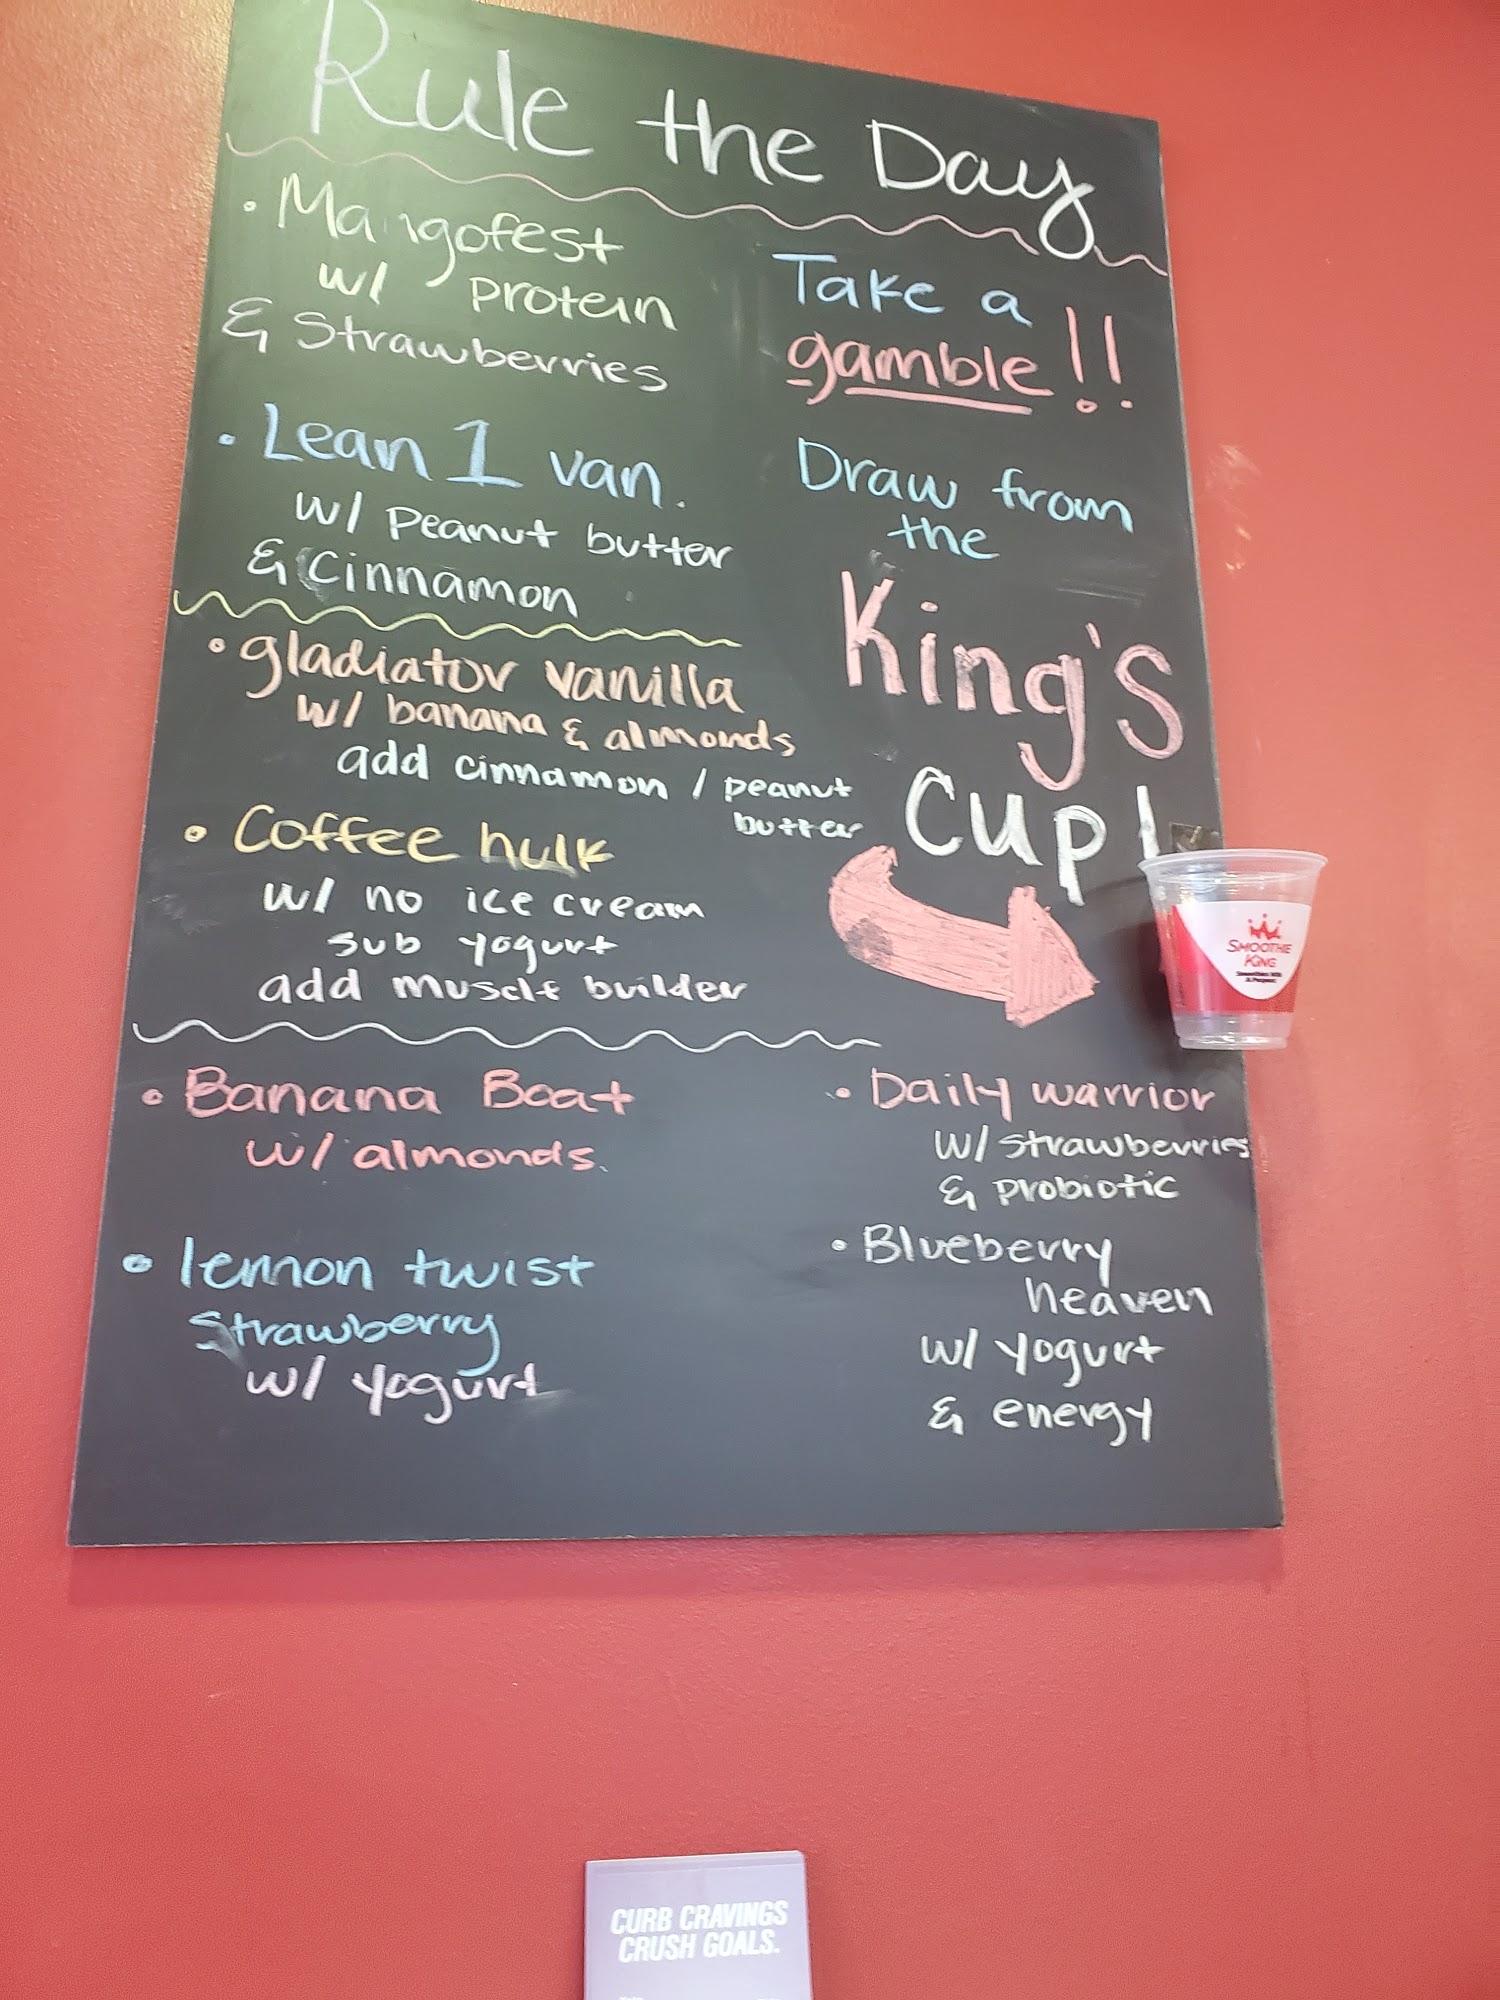 Rule the Day
• Mangofest
w/ protein
& Strawberries
• Lean 1 van.
w/ peanut butter
& Cinnamon
• gladiator vanilla
w/ banana & almonds
add cinnamon / peanut
butter
• Coffee hulk
w/ no ice cream
sub yogurt
add muscle builder
• Banana Boat
w/ almonds.
• lemon twist
Strawberry
w/ yogurt
Take a
gamble!!
Draw from
the
King's
Cup!
SMOOTHIE
KING
• Daily warrior
w/ strawberries
& probiotic
• Blueberry
heaven
w/ yogurt
& energy
CURB CRAVINGS
CRUSH GOALS.